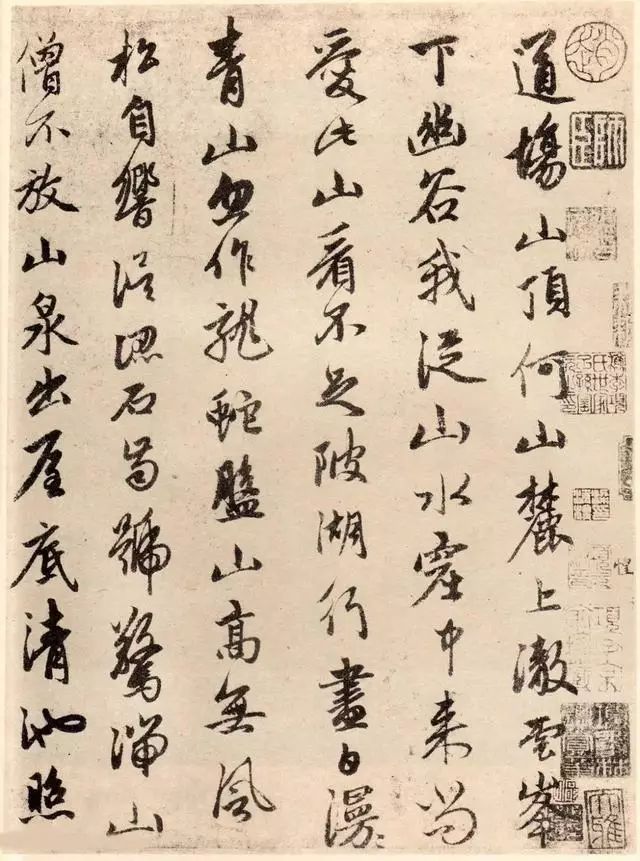 道塲山頂何山麓上澈雲峯
下幽谷我從山水窟中来尚
愛此山看不足陂湖行盡白漫〻
青山忽作龍蛇盤山高無風
松自響誤認石齒號驚湍山
僧不放山泉出屋底清池照